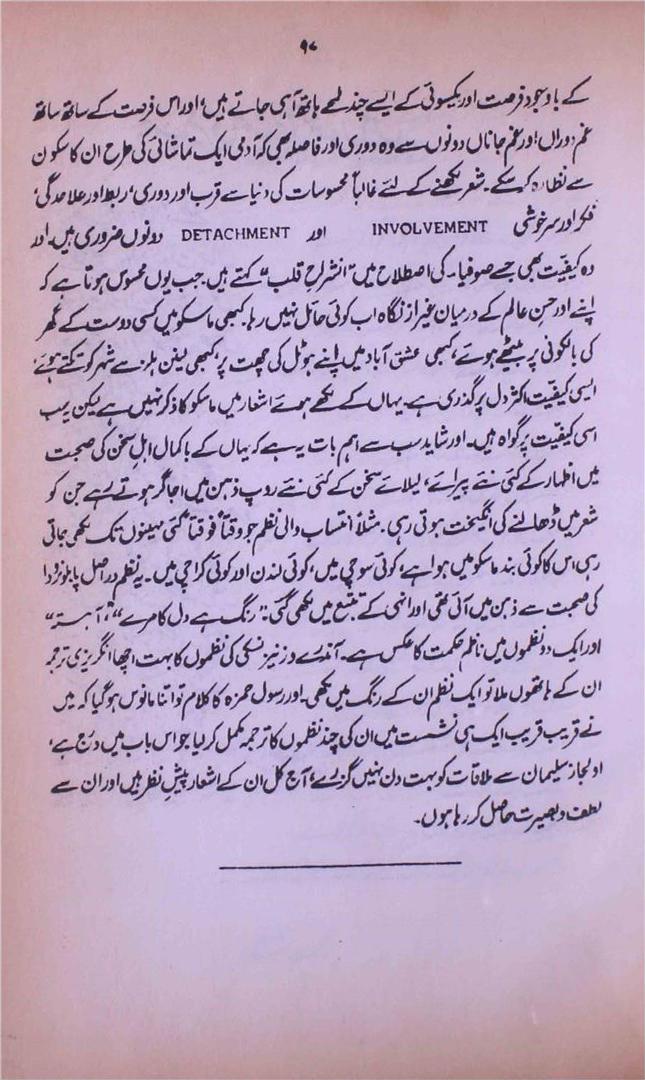 ۹۷
کے باوجود فرصت اور یکسوئی کے ایسے چند لمحے ہاتھ آ ہی جاتے ہیں، اور اس فرصت کے ساتھ ساتھ
غمِ دوراں اور غمِ جاناں دونوں سے وہ دوری اور فاصلہ بھی کہ آدمی ایک تماشائی کی طرح ان کا سکون
سے نظارہ کر سکے۔ شعر لکھنے کے لئے غالباً محسوسات کی دنیا سے قرب اور دوری، ربط اور علاحدگی،
فکر اور سرخوشی INVOLVEMENT اور DETACHMENT دونوں ضروری ہیں۔ اور
وہ کیفیت بھی جسے صوفیاء کی اصطلاح میں "انشراحِ قلب" کہتے ہیں۔ جب یوں محسوس ہوتا ہے کہ
اپنے اور حسنِ عالم کے درمیان غیر از نگاہ اب کوئی حائل نہیں رہا۔ کبھی ماسکو میں کسی دوست کے گھر
کی بالکونی پر بیٹھے ہوئے، کبھی عشق آباد میں اپنے ہوٹل کی چھت پر، کبھی لینن ہلز سے شہر کو تکتے ہوئے
ایسی کیفیت اکثر دل پر گذری ہے۔ یہاں کے لکھے ہوئے اشعار میں ماسکو کا ذکر نہیں ہے لیکن یہ سب
اسی کیفیت پر گواہ ہیں۔ اور شاید سب سے اہم بات یہ ہے کہ یہاں کے باکمال اہلِ سخن کی صحبت
میں اظہار کے کئی نئے پیرائے، لیلائے سخن کے کئی نئے روپ ذہن میں اجاگر ہوتے رہے جن کو
شعر میں ڈھالنے کی انگیخت ہوتی رہی۔ مثلاً انتساب والی نظم جو وقتاً فوقتاً کئی مہینوں تک لکھی جاتی
رہی اس کا کوئی بند ماسکو میں ہوا ہے، کوئی سوچی میں، کوئی لندن اور کوئی کراچی میں۔ یہ نظم دراصل پابلو نرودا
کی صحبت سے ذہن میں آئی تھی اور انہی کے تتبع میں لکھی گئی۔ "رنگ ہے دل کا مرے"، "آہستہ"
اور ایک دو نظموں میں ناظم حکمت کا عکس ہے۔ آندرے وزنیزنسکی کی نظموں کا بہت اچھا انگریزی ترجمہ
ان کے ہاتھوں ملا تو ایک نظم ان کے رنگ میں لکھی۔ اور رسول حمزہ کا کلام تو اتنا مانوس ہو گیا کہ میں
نے قریب قریب ایک ہی نشست میں ان کی چند نظموں کا ترجمہ مکمل کر لیا جو اس باب میں درج ہے،
اولجاز سلیمان سے ملاقات کو بہت دن نہیں گزرے، آج کل ان کے اشعار پیشِ نظر ہیں اور ان سے
لطف و بصیرت حاصل کر رہا ہوں۔